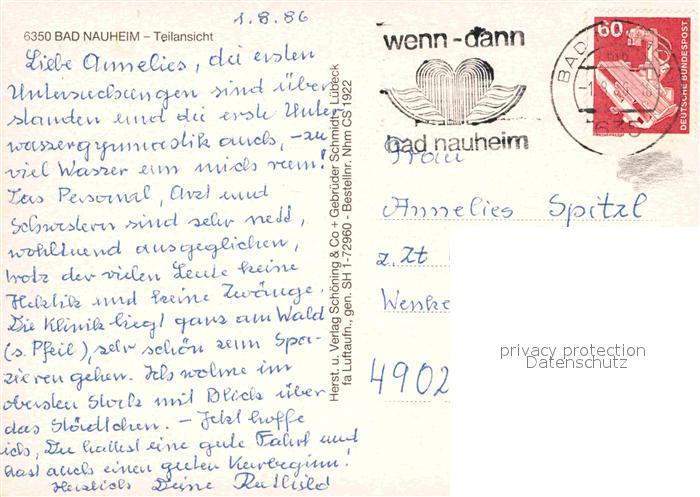 1.8.86
6350 BAD NAUHEIM – Teilansicht
Liebe Annelies, die ersten
Untersuchungen sind über
standen und die erste Unter
wassergymnastik auch, – zu
viel Wasser um mich rum!
Das Personal, Arzt und
Schwestern sind sehr nett,
wohltuend ausgeglichen,
trotz der vielen Leute keine
Hektik und keine Zwänge.
Die Klinik liegt ganz am Wald
(s. Pfeil), sehr schön zum Spa-
zierengehen. Ich wohne im
obersten Stock mit Blick über
das Städtchen. – Jetzt hoffe
ich, Du hattest eine gute Fahrt und
hast auch einen guten Kurbeginn!
Herzlich Deine Ruthild
Herst. u. Verlag Schöning & Co + Gebrüder Schmidt, Lübeck
fa Luftaufn., gen. SH 1-72960 - Bestellnr. Nhm CS 1922
wenn-dann
bad nauheim
BAD
60
DEUTSCHE BUNDESPOST
Frau
Annelies Spitzl
z. Zt
Wenke
4902
privacy protection
Datenschutz